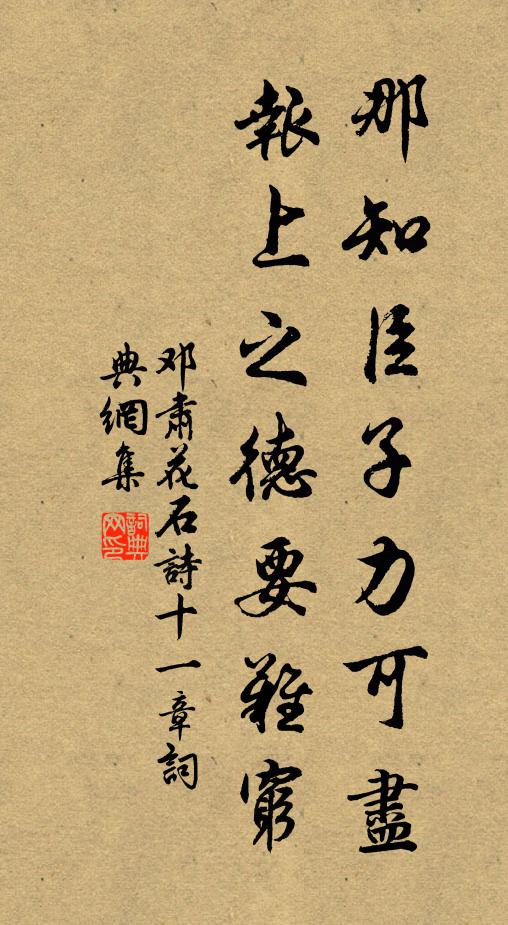 那知臣子力可盡
報上之德要難窮
邓肃花石詩十一章詞
典網集
詞典
网印